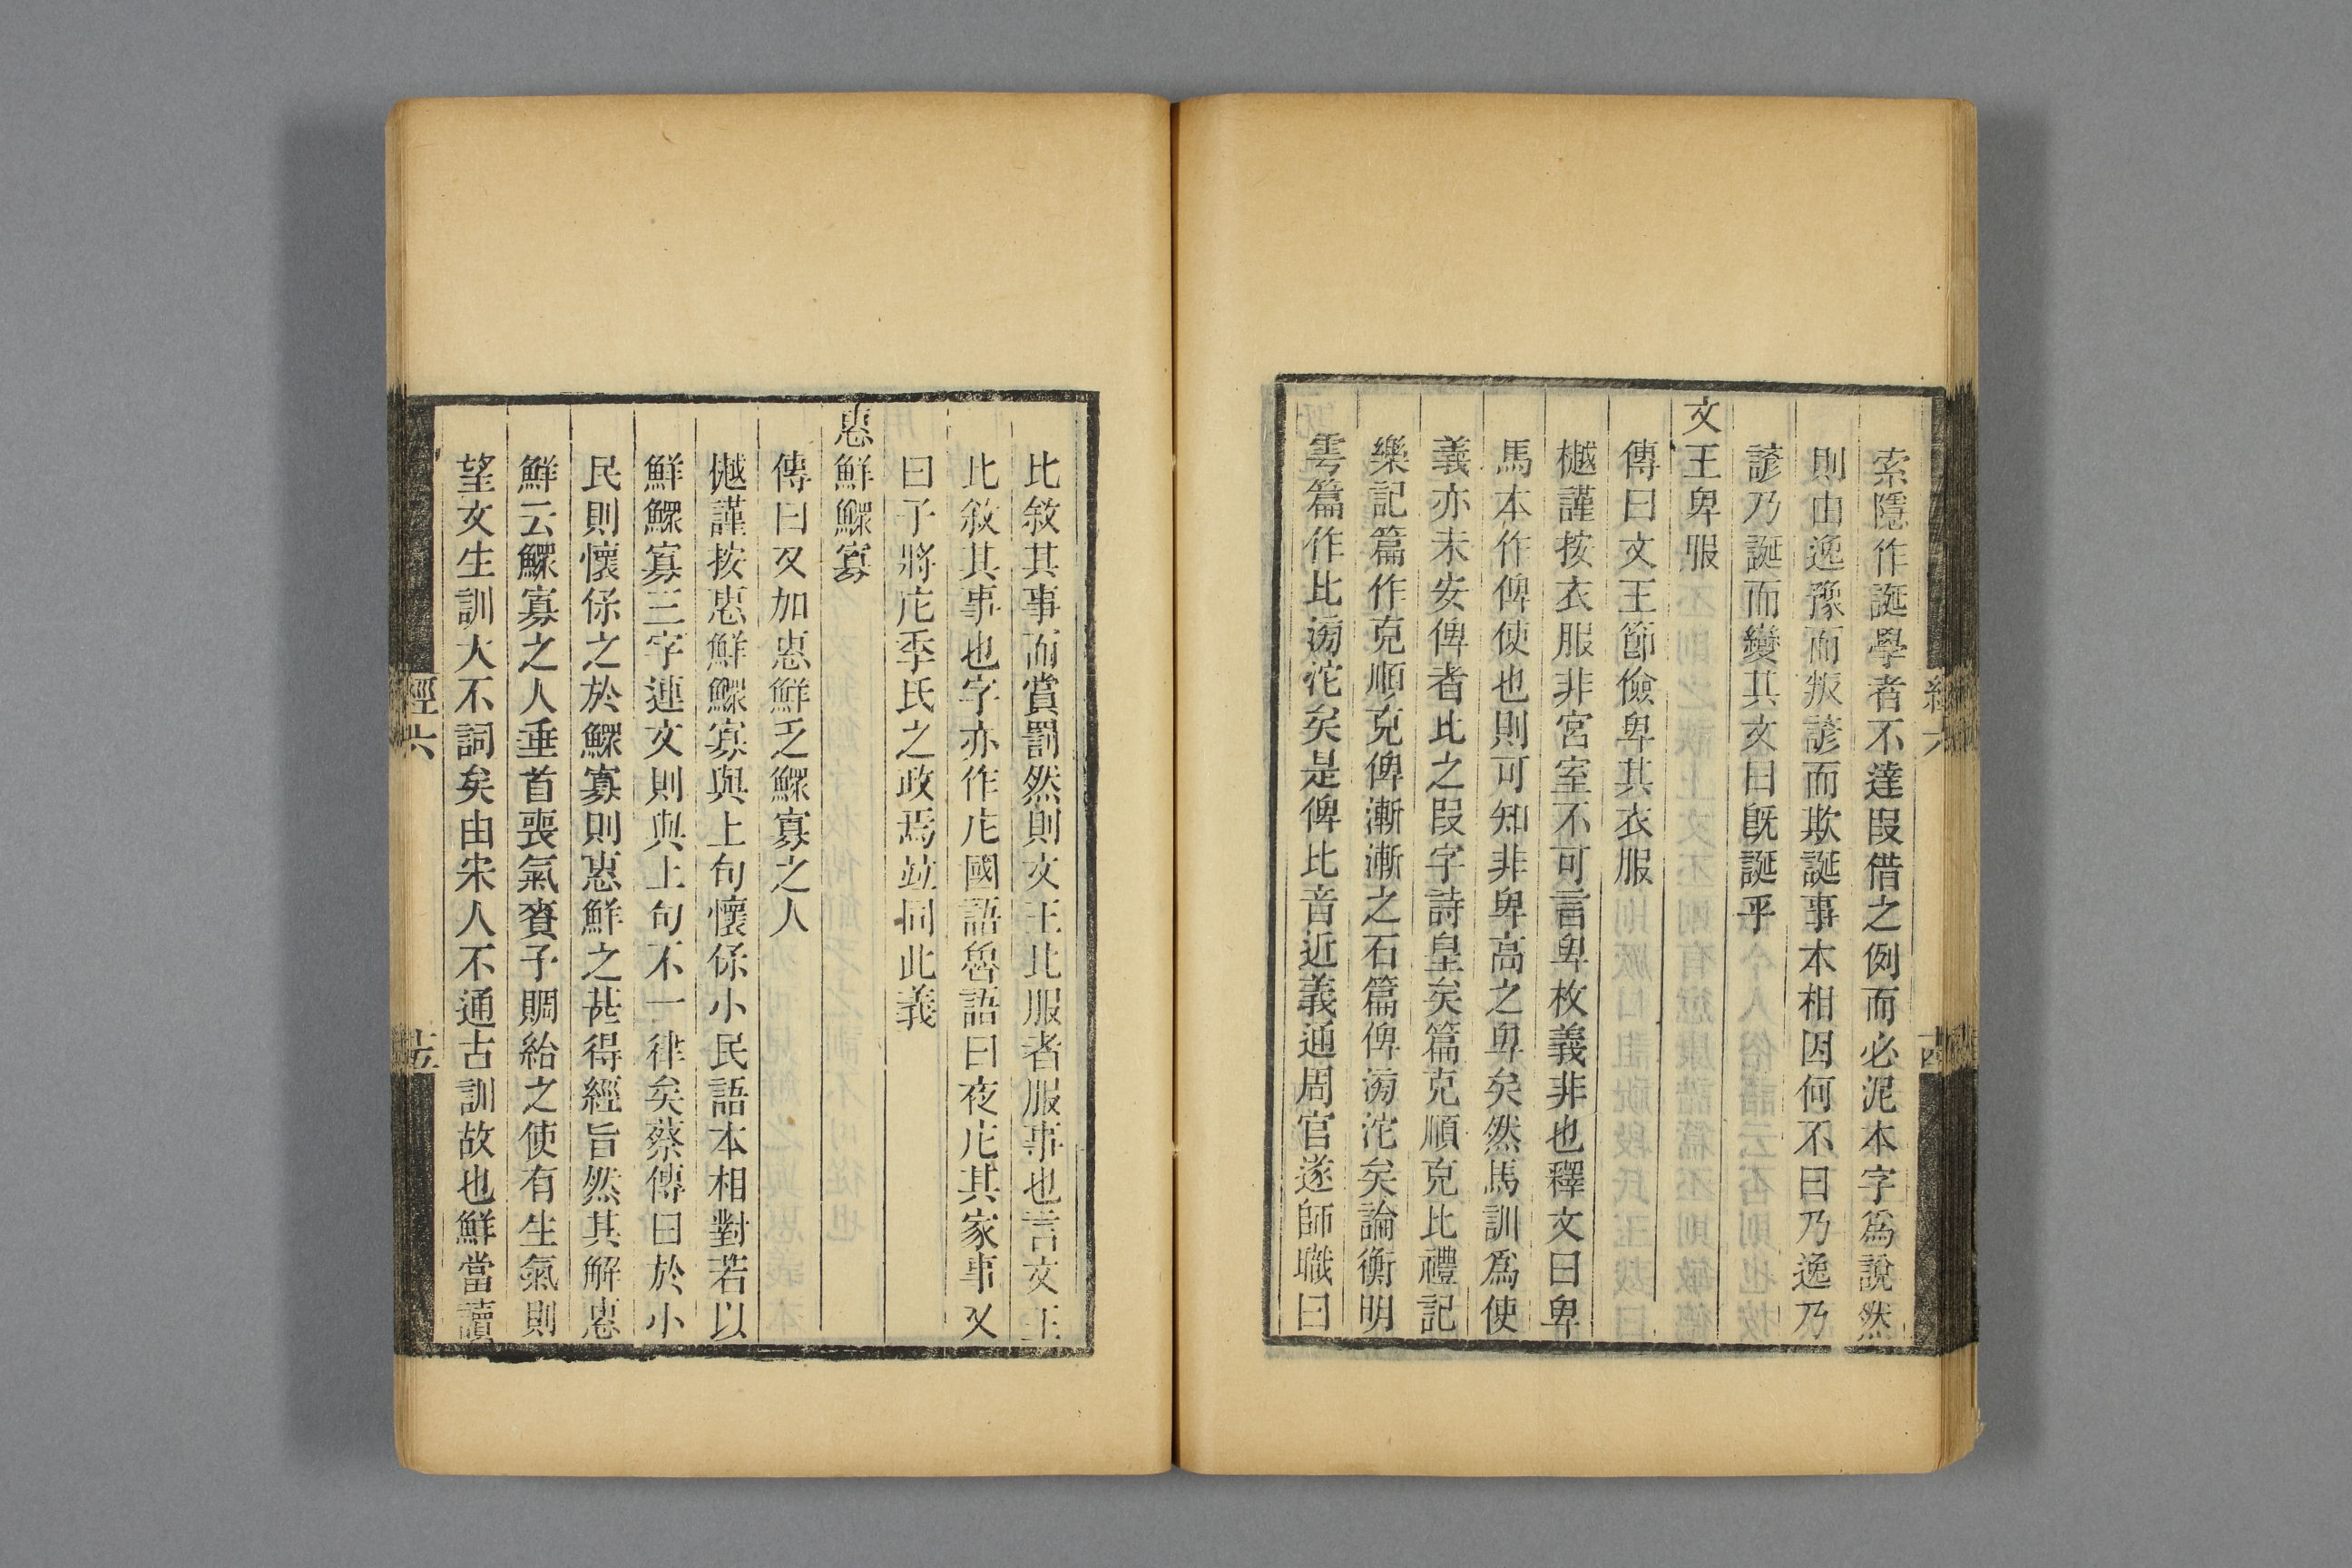 索隱作誕學者不達叚借之例而必泥本字爲說然
則由逸豫而叛諺而欺誕事本相因何不曰乃逸乃
諺乃誕而變其文曰旣誕乎
文王卑服
傳曰文王節儉卑其衣服
樾謹按衣服非宮室不可言卑枚義非也釋文曰卑
馬本作俾使也則可知非卑高之卑矣然馬訓爲使
義亦未安俾者比之叚字詩皇矣篇克順克比禮記
樂記篇作克順克俾漸漸之石篇俾滂沱矣論衡明
雩篇作比滂沱矣是俾比音近義通周官遂師職曰
經六
十四
比敘其事而賞罰然則文王比服者服事也言文王
比敘其事也字亦作庀國語魯語曰夜庀其家事又
曰子將庀季氏之政焉竝同此義
惠鮮鰥寡
傳曰又加惠鮮乏鰥寡之人
樾謹按惠鮮鰥寡與上句懷保小民語本相對若以
鮮鰥寡三字連文則與上句不一律矣蔡傳曰於小
民則懷保之於鰥寡則惠鮮之甚得經旨然其解惠
鮮云鰥寡之人垂首喪氣賚予賙給之使有生氣則
望文生訓大不詞矣由宋人不通古訓故也鮮當讀
經六
十五